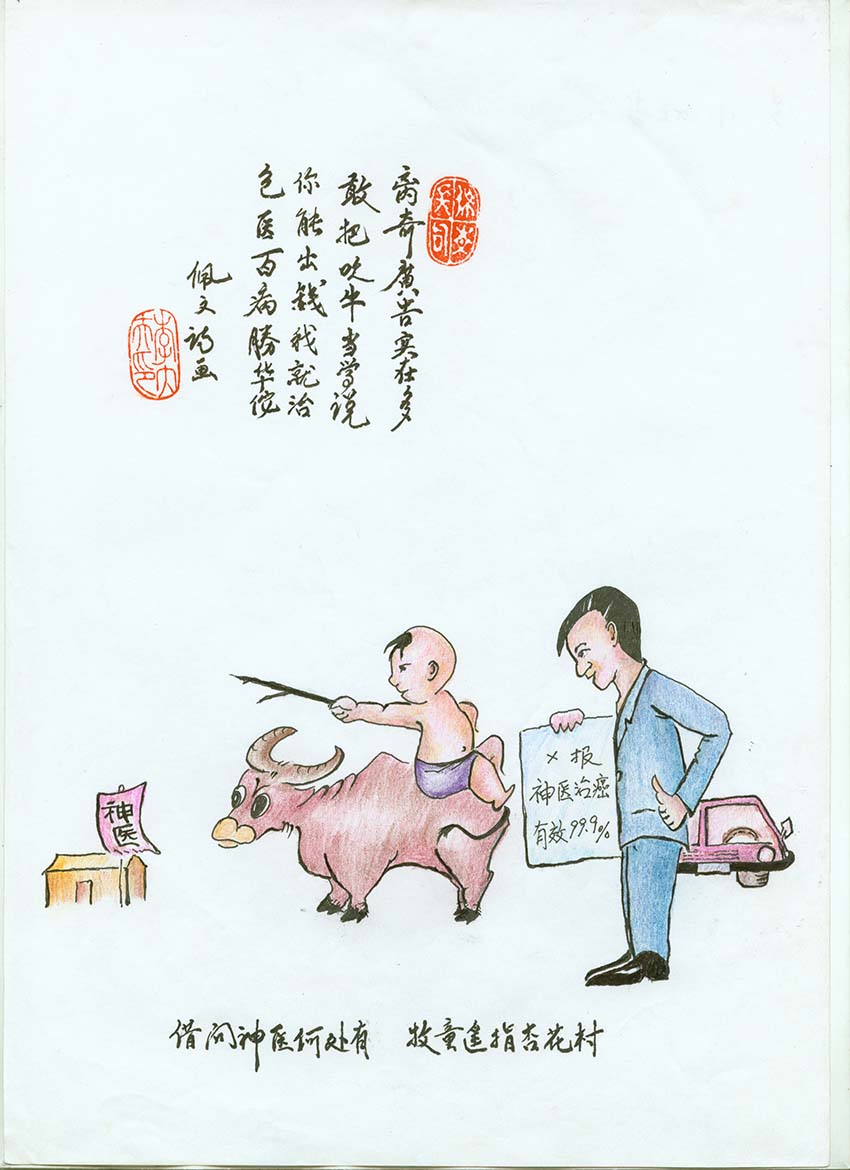 离奇廣告实在多
敢把吹牛当学说
你能出錢我就治
包医百病勝华佗
佩文诗画
神医
×报
神医治癌
有效99.9%
借问神医何处有 牧童遥指杏花村